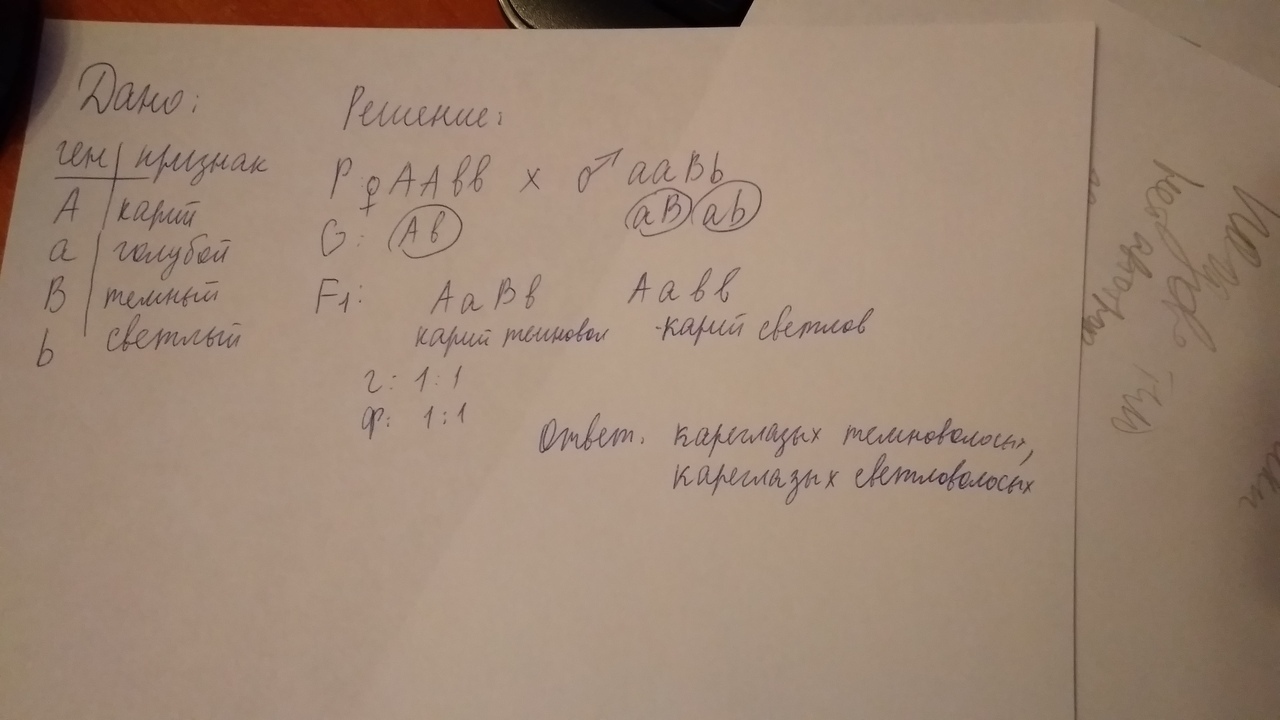 Дано:
ген признак
A карий
a голубой
B темный
b светлый
Решение:
P: ♀ AAвв x ♂ aaBb
G: Aв aB ab
F1: AaBв Aaвв
карий темновол карий светлов
г: 1:1
ф: 1:1
Ответ. кареглазых темноволосых,
кареглазых светловолосых